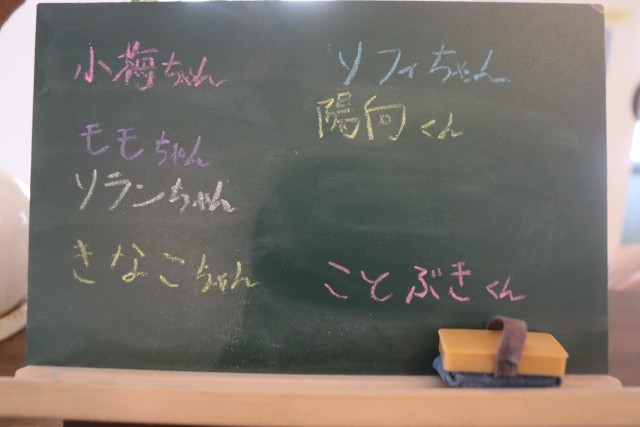 小梅ちゃん
モモちゃん
ソランちゃん
きなこちゃん
ソフィちゃん
陽向くん
ことぶきくん